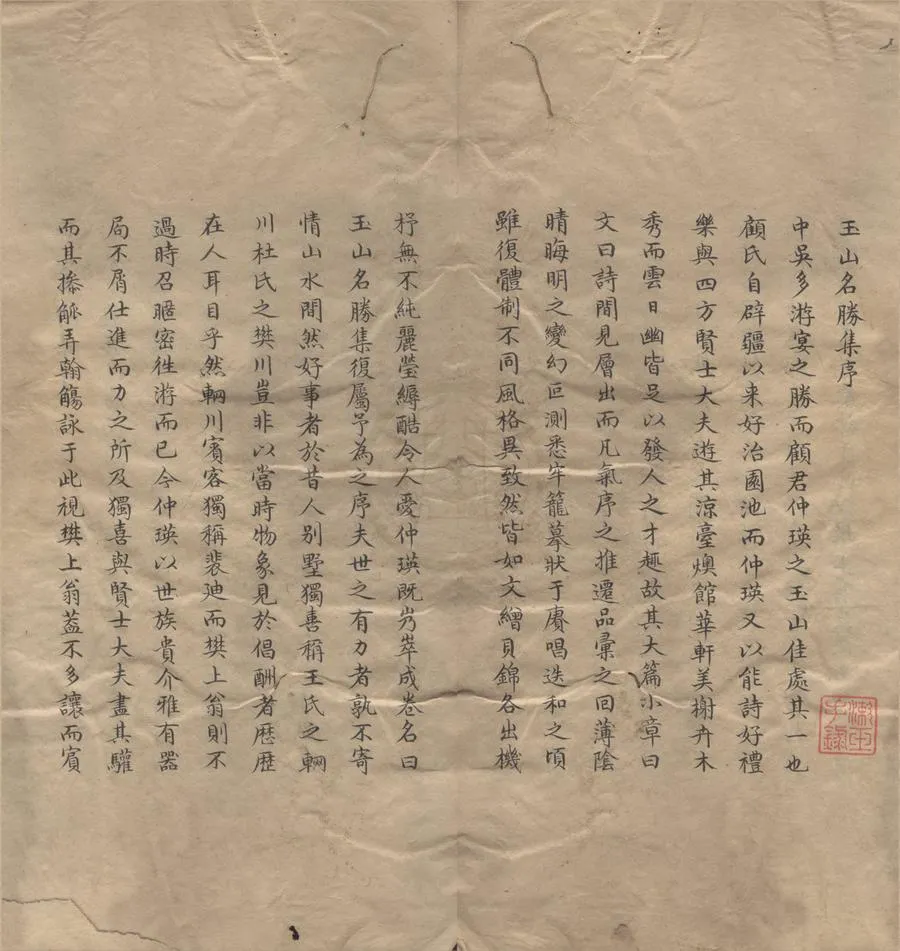 玉山名勝集序
中吳多游宴之勝而顧君仲瑛之玉山佳處其一也
顧氏自辟疆以来好治園池而仲瑛又以能詩好禮
樂與四方賢士大夫遊其涼臺燠館華軒美榭卉木
秀而雲日幽皆足以發人之才趣故其大篇小章曰
文曰詩間見層出而凡氣序之推遷品彙之回薄陰
晴晦明之變幻叵測悉牢籠摹狀于賡唱迭和之頃
雖復體制不同風格異致然皆如文繒貝錦各出機
杼無不純麗瑩縟酷令人愛仲瑛既裒萃成卷名曰
玉山名勝集復屬予為之序夫世之有力者孰不寄
情山水間然好事者於昔人别墅獨喜稱王氏之輞
川杜氏之樊川豈非以當時物象見於倡酬者歷歷
在人耳目乎然輞川賓客獨稱裴迪而樊上翁則不
過時召暱密徃游而已今仲瑛以世族貴介雅有器
局不屑仕進而力之所及獨喜與賢士大夫盡其驩
而其摻觚弄翰觴詠于此視樊上翁葢不多讓而賓